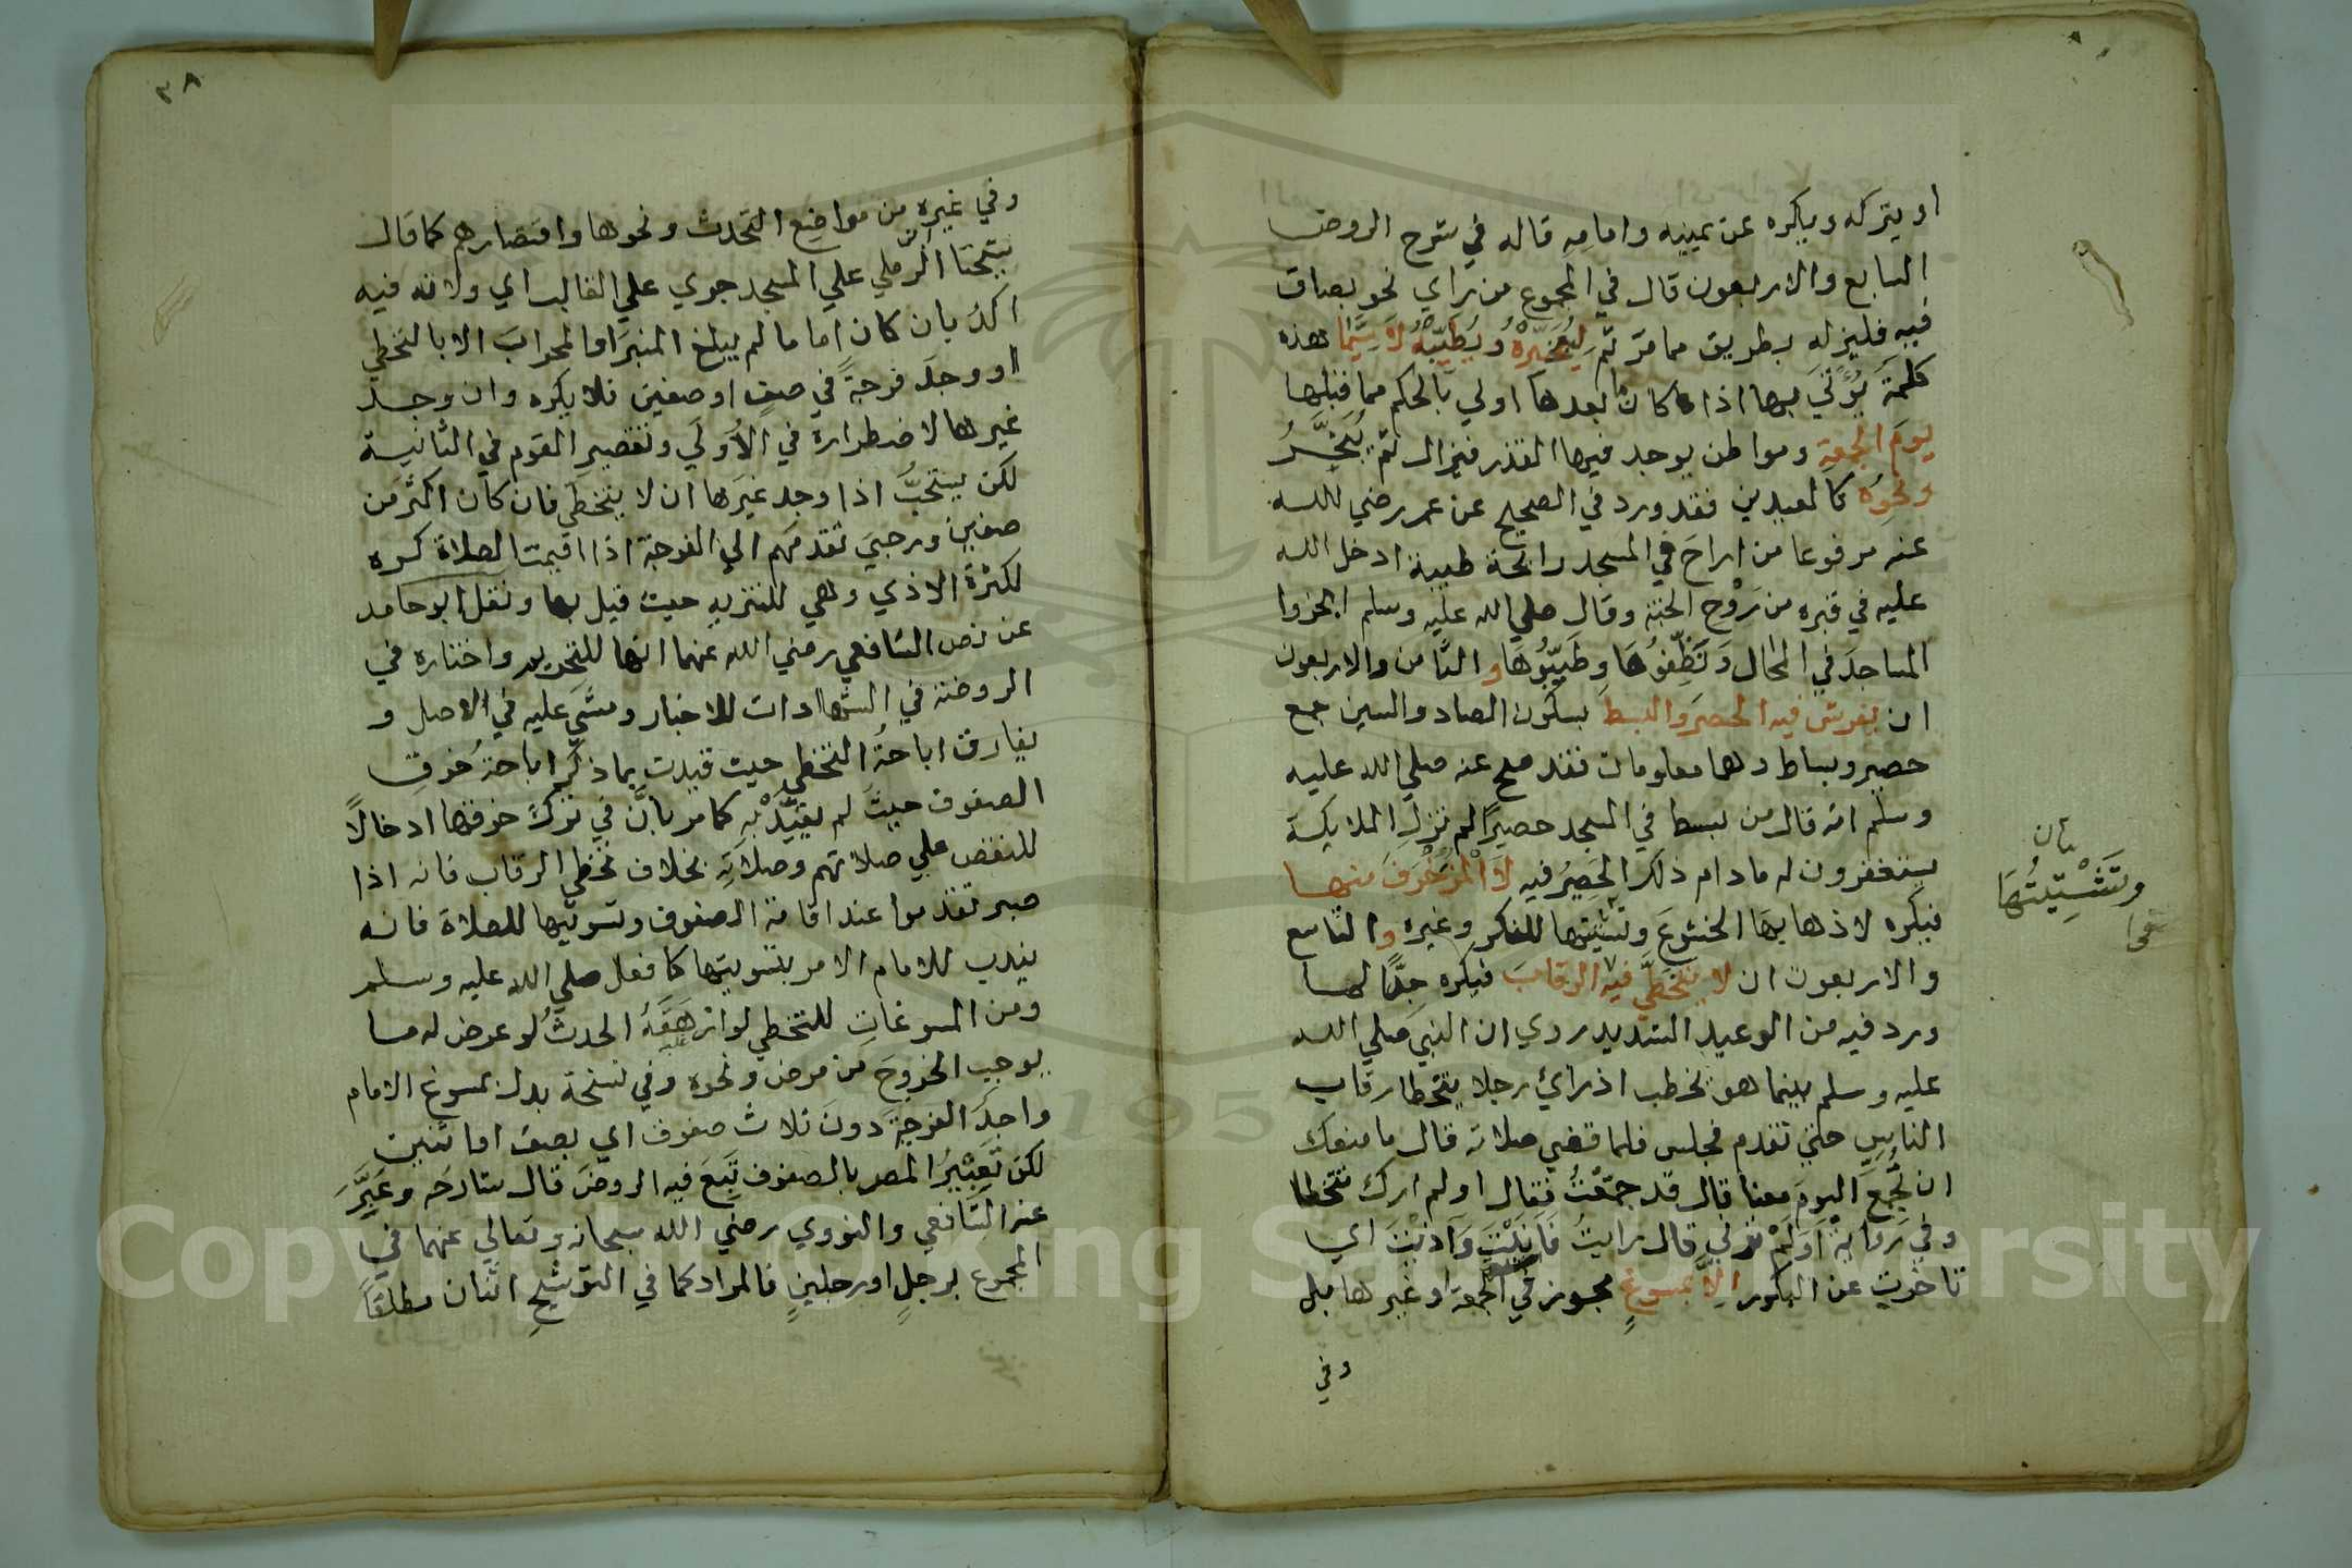 او يتركه ويكره عن يمينيه وامامه قاله في شرح الروض
السابع والاربعون قال في المجموع من راي نحو بصاق
فيه فليزله بطريق مما مرّ ثم ليبخّره ويُطيّبه لا سيّما هذه
كلمة يؤتي بها اذا كان ما بعدها اولي بالحكم مما قبلها
يوم الجمعة ومواطن يوجد فيها القذر فيزال ثم يُبَخَّرُ
ونحوه كالعيدين فقد ورد في الصحيح عن عمر رضي الله
عنه مرفوعا من اراح في المسجد رائحة طيبة ادخل الله
عليه في قبره من رَوْح الجنة وقال صلي الله عليه وسلم ابخروا
المساجد في المحال وَنَظِّفوُهَا وطَيِّبُوهَا و الثامن والاربعون
ان يفرش فيه الحصر والبسط بسكون الصاد والسين جمع
حصير وبساط وهما معلومان فقد صح عنه صلي الله عليه
وسلم انه قال من بسط في المسجد حصيرًا لم تزل الملايكة
يستغفرون له مادام ذلك الحَصِيرُ فيه لا المُزَخْرَفَ منها
فيكره لاذهابها الخشوعَ وتشتيتها للفكر وغيره والتاسع
والاربعون ان لا يتخطّي فيه الرقابَ فيكره جدًّا لما
ورد فيه من الوعيد الشديد روي ان النبي صلي الله
عليه وسلم بينما هو يخطب اذ رأي رجلا يتخطا رقاب
الناس حتي تقدم فجلس فلما قضي صلاته قال ما منعك
ان تُجمع اليوم معنا قال قد جمّعْتُ فقال اولم ارك تتخطا
وفي رواية اَوَلَمْ ترني قال رايتُ فَاَنَيْتَ وَآذَيْتَ اي
تاخرت عن البكور الا بمسوغٍ مجوز في الجمعة او غيرها مبل
وفي
بيان
وتَشْتِيتُهَا
٣٨
وفي غيره من مواضع التحدث ونحوها واقتصارهم كما قال
شيخنا الرّملي علي المسجد جري علي الغالب اي ولانه فيه
اكد بان كان اماما لم يبلغ المنبر او المحراب الا بالتخطي
او وجد فرجةً في صفٍ او صفين فلا يكره وان وجد
غيرها لاضطراره في الأولَي وتقصير القوم في الثانية
لكن يستحبُّ اذا وجد غيرها ان لا يتخطي فان كان اكثر من
صفين ورجي تقدمهم الي الفرجة اذا اقيمت الصلاة كره
لكثرة الاذي وهي للتنزيه حيث قيل بها ونقل ابو حامد
عن نص الشافعي رضي الله عنهما انها للتحريم واختاره في
الروضة في الشهادات للاخبار ومشَي عليه في الاصل و
يفارق اباحةُ التخطي حيث قيدت بما ذكر اباحة خرق
الصفوف حيثُ لم يقيّدْ به كما مر بانّ في تركِ خرقها ادخالاً
للنقص علي صلاتهم وصلاته بخلاف تخطي الرقاب فانه اذا
صبر تقدموا عند اقامة الصفوف وتسويتها للصلاة فانه
يندب للامام الامر بتسويتها كما فعل صلي الله عليه وسلم
ومن المسوغاتِ للتخطي لو ارهَقَهُ الحدثُ لو عرض له ما
يوجب الخروجَ من مرض ونحوه وفي نسخة بدل بمسوغ الامام
واجدَ الفرجةِ دونَ ثلاث صفوف اي بصف او اثنين
لكن تَعبيرُ المصر بالصفوف تَبِعَ فيه الروضَ قال شارحه وعَبَّرَ
عنه الشافعي والنووي رضي الله سبحانه وتعالي عنهما في
المجموع برجلٍ او رجلينٍ فالمراد كما في التوشيحِ اثنان مطلقًا
Copyright © King Saud University
195